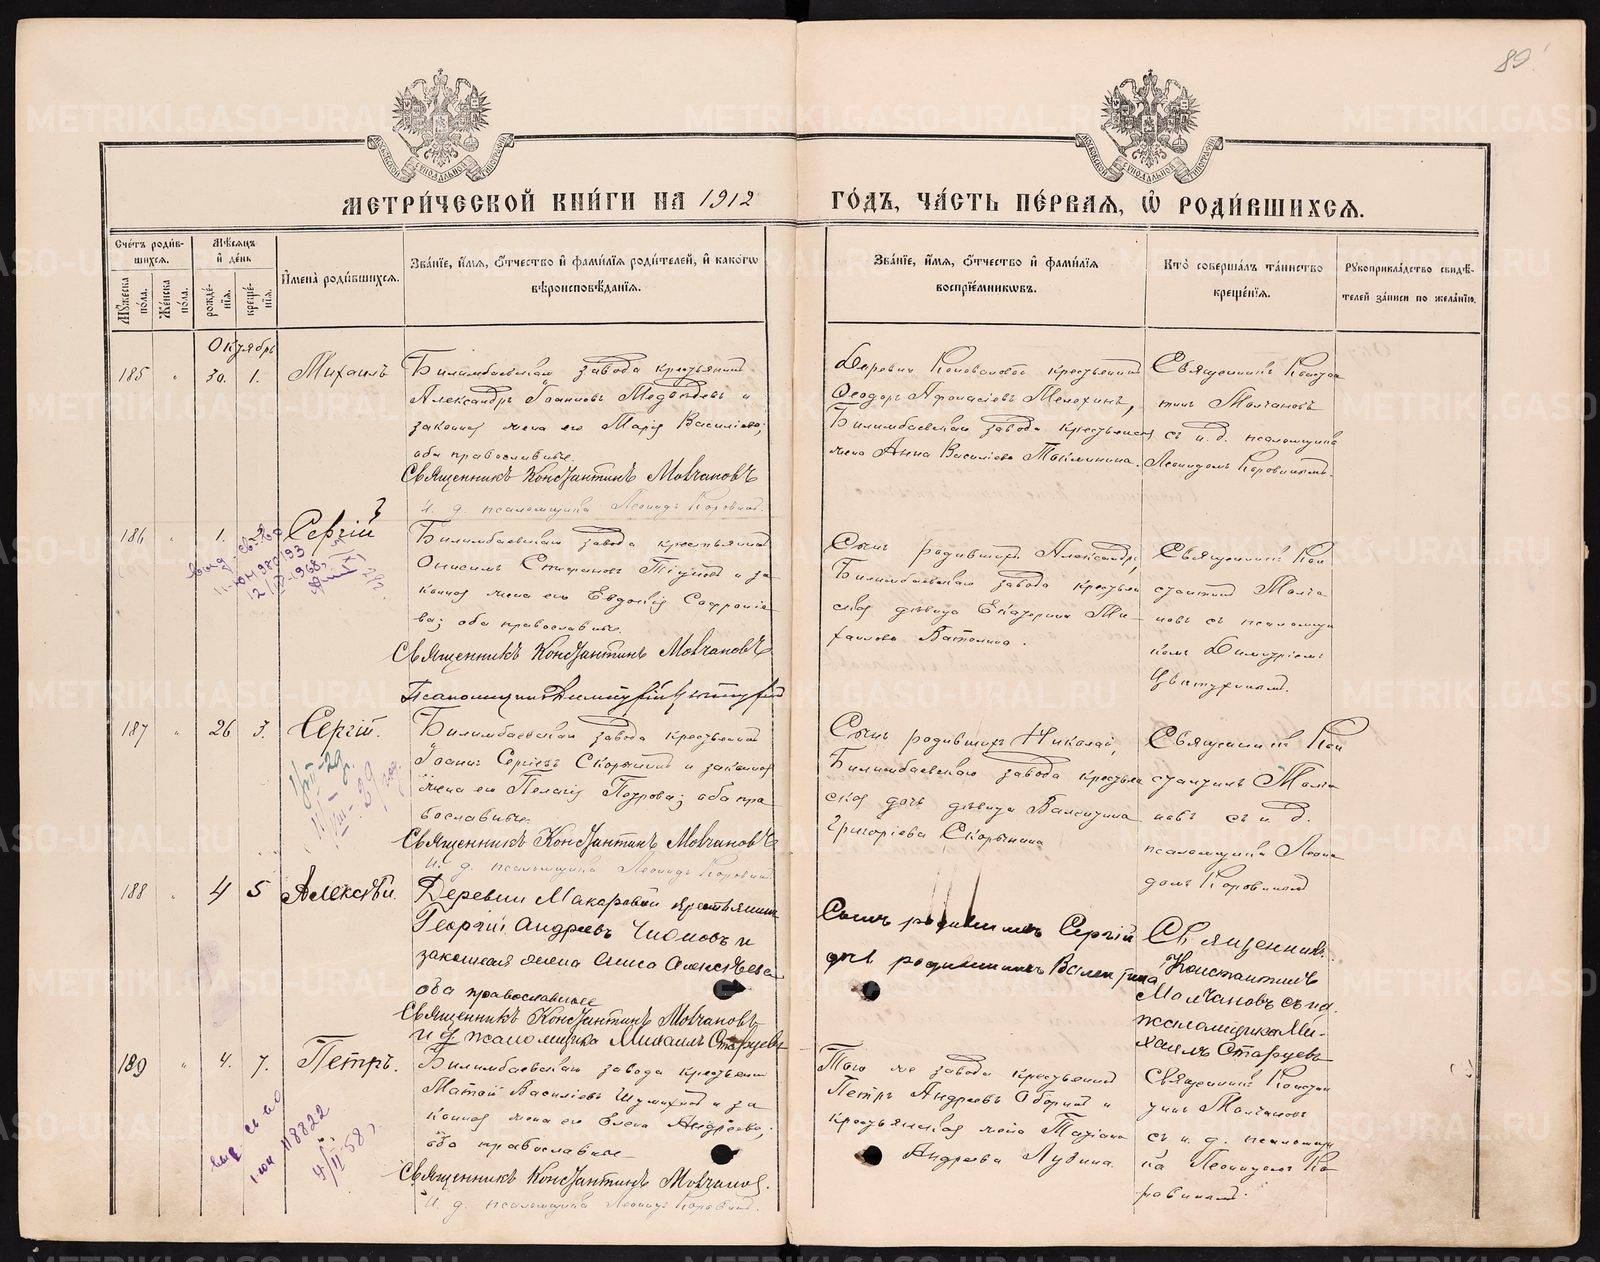 89
МЕТРИ́ЧЕСКОЙ КНИ́ГИ НА 1912 ГО́ДЪ, ЧА́СТЬ ПЕ́РВАЯ, Ѡ҆ РОДИ́ВШИХСЯ.
Сче́тъ роди́вшихся.
Мꙋ́жеска по́ла.
Же́нска по́ла.
Мѣ́сяцъ и҆ де́нь
рожде́нїя.
креще́нїя.
И҆мена̀ роди́вшихся.
Зва́нїе, и҆́мя, ѻ҆́тчество и҆ фами́лїя роди́телей, и҆ како́гѡ
вѣроисповѣ́данїя.
Зва́нїе, и҆́мя, ѻ҆́тчество и҆ фами́лїя
воспрїе́мникѡвъ.
Кто̀ соверша́лъ та́инство
креще́нїя.
Рꙋкоприкла́дство свидѣ́-
телей за́писи по жела́нїю.
Октябрь
185
30.
1.
Михаилъ
Билимбаевскаго завода крестьянинъ
Александръ Іоанновъ Медвѣдевъ и
законная жена его Марія Василіева;
оба православные.
Священникъ Константинъ Молчановъ
и. д. псаломщика Леонидъ Коровинъ.
Деревни Коноваловой крестьянинъ
Ѳеодоръ Аѳанасіевъ Мелехинъ,
Билимбаевскаго завода крестьянская
жена Анна Василіева
Священникъ Констан-
тинъ Молчановъ
съ и. д. псаломщика
Леонидомъ Коровинымъ.
186
1.
2.
Сергій
Билимбаевскаго завода крестьянинъ
Онисимъ Стефановъ и за-
конная жена его Евдокія Софроніе-
ва; оба православные.
Священникъ Константинъ Молчановъ
Псаломщикъ Димитрій
Сынъ родившихъ Александръ,
Билимбаевскаго завода крестьян-
ская дѣвица Екатерина Ми-
хаилова Ватолина.
Священникъ Кон-
стантинъ Молча-
новъ съ псаломщи-
комъ Димитріемъ
187
26
3.
Сергій.
Билимбаевскаго завода крестьянинъ
Іоаннъ Сергіевъ Скорынинъ и законная
жена его Пелагія Петрова; оба пра-
вославные.
Священникъ Константинъ Молчановъ
и. д. псаломщика Леонидъ Коровинъ
Сынъ родившихъ Николай,
Билимбаевскаго завода крестьян-
ская дочь дѣвица Валентина
Григоріева Скорынина
Священникъ Кон-
стантинъ Молча-
новъ съ и. д.
псаломщика Леони-
домъ Коровинымъ
188
4
5
Алексѣй.
Деревни Макаровой крестьянинъ
Георгій Андреевъ и
законная жена Алексѣева
оба православные
Священникъ Константинъ Молчановъ
и д псаломщика Михаилъ Старцевъ
Сынъ родившихъ Сергій
дочь родившихъ Валентина
Священникъ
Константинъ
Молчановъ съ ид.
псаломщика Ми-
хаилъ Старцевъ
189
4.
7.
Петръ.
Билимбаевскаго завода крестьянинъ
Матѳій Василіевъ и за-
конная жена его Елена Андреева;
оба православные
Священникъ Константинъ Молчановъ.
и. д. псаломщика Леонидъ Коровинъ.
Того же завода крестьянинъ
Петръ Андреевъ и
крестьянская жена Татіана
Андреева Лузина.
Священникъ Констан-
тинъ Молчановъ
съ и. д. псаломщи-
ка Леонидомъ Ко-
ровинымъ.